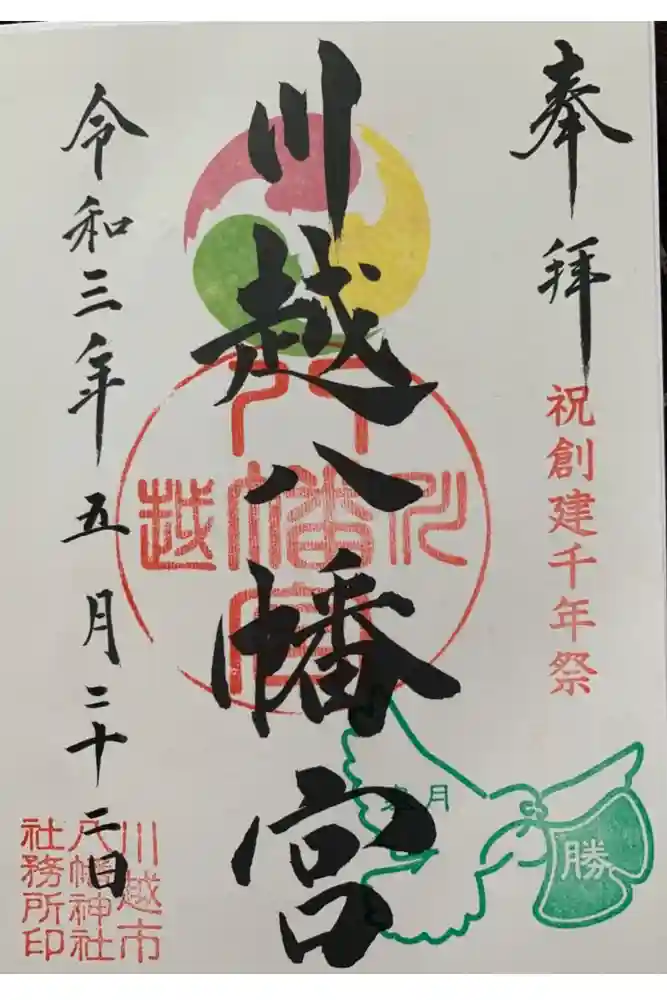 奉拝
祝創建千年祭
川越八幡宮
川越
八幡宮
皐月
勝
令和三年五月二十二日
川越市
八幡神社
社務所印